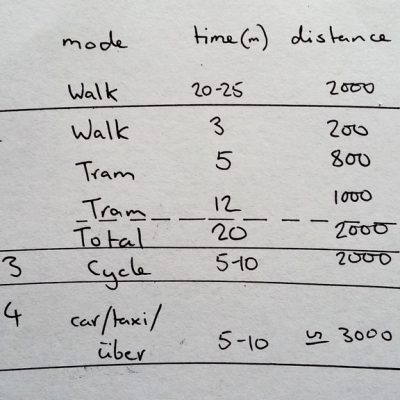 mode time(m) distance
Walk 20-25 2000
Walk 3 200
Tram 5 800
Tram 12 1000
Total 20 2000
3 Cycle 5-10 2000
4 car/taxi/
über 5-10 ≃ 3000